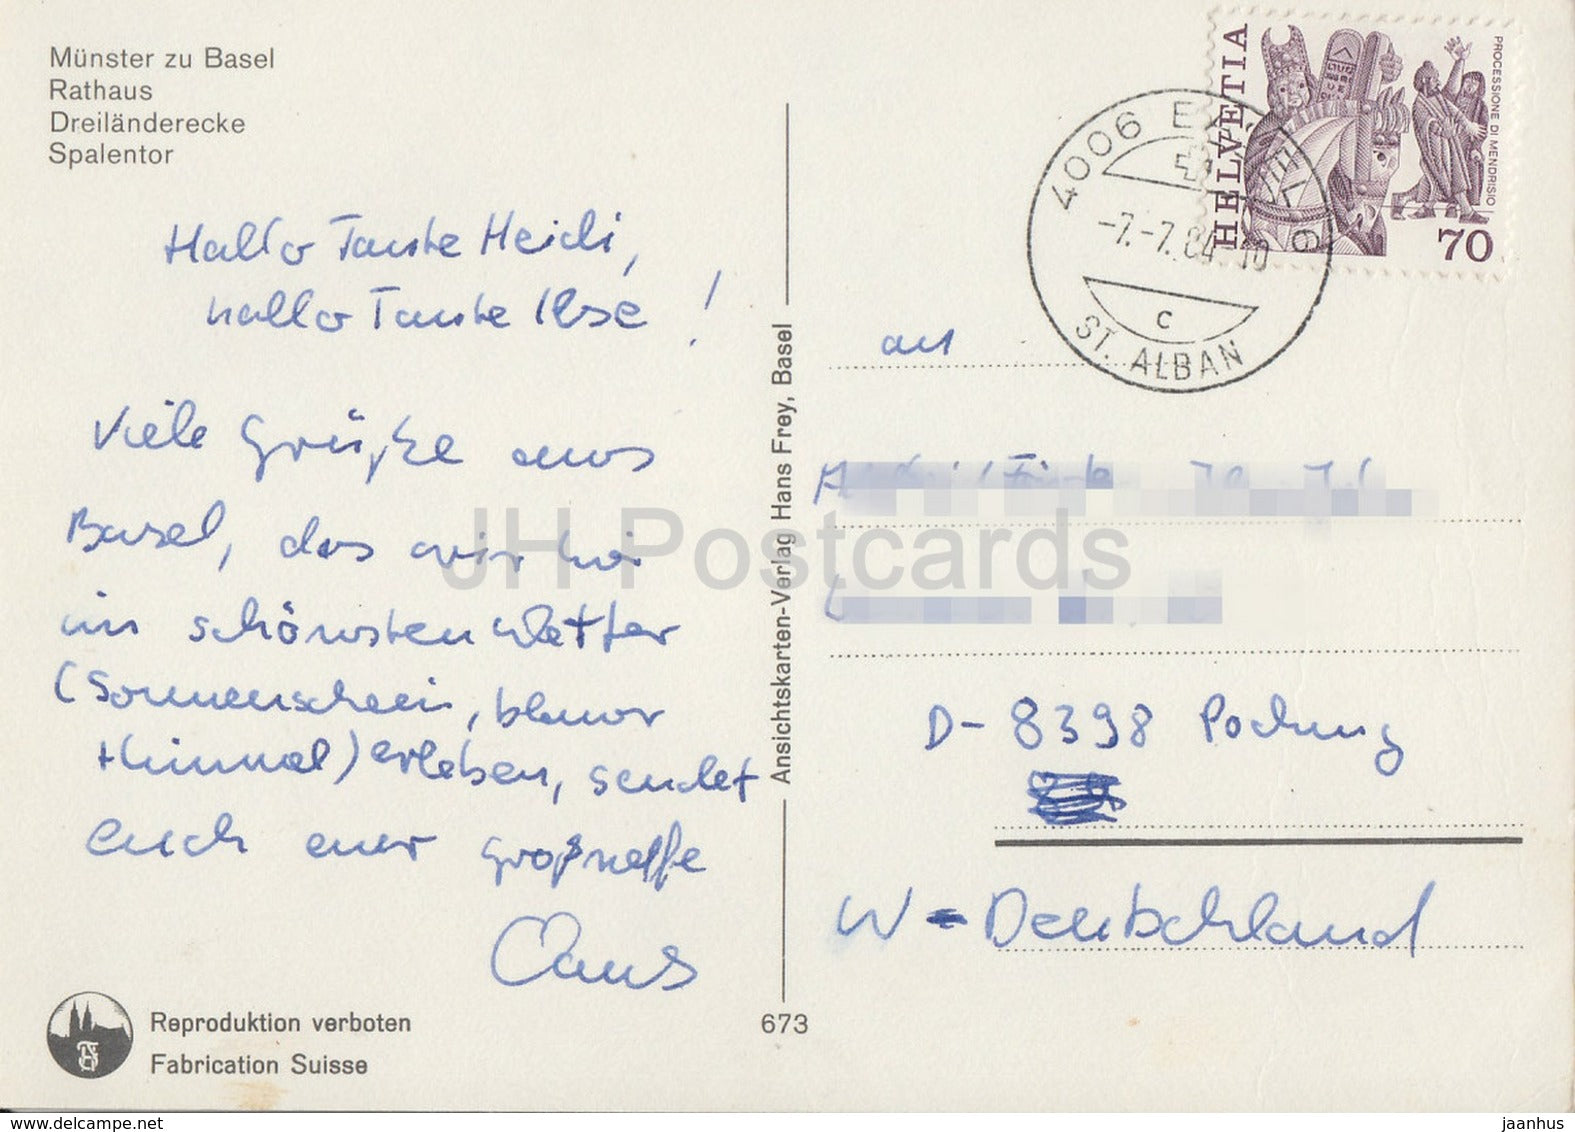 Münster zu Basel
Rathaus
Dreiländerecke
Spalentor
Hallo Tante Heidi,
hallo Tante Ilse !
Viele Grüße aus
Basel, das wir hier
im schönsten Wetter
(Sonnenschein, blauer
Himmel) erleben, sendet
euch euer Großneffe
Claus
Reproduktion verboten
Fabrication Suisse
Ansichtskarten-Verlag Hans Frey, Basel
673
HELVETIA
PROCESSIONE DI MENDRISIO
70
4006
-7.-7.84-10
C
ST. ALBAN
an
D-8398 Pocking
W-Deutschland
JH Postcards
www.delcampe.net
jaanhus